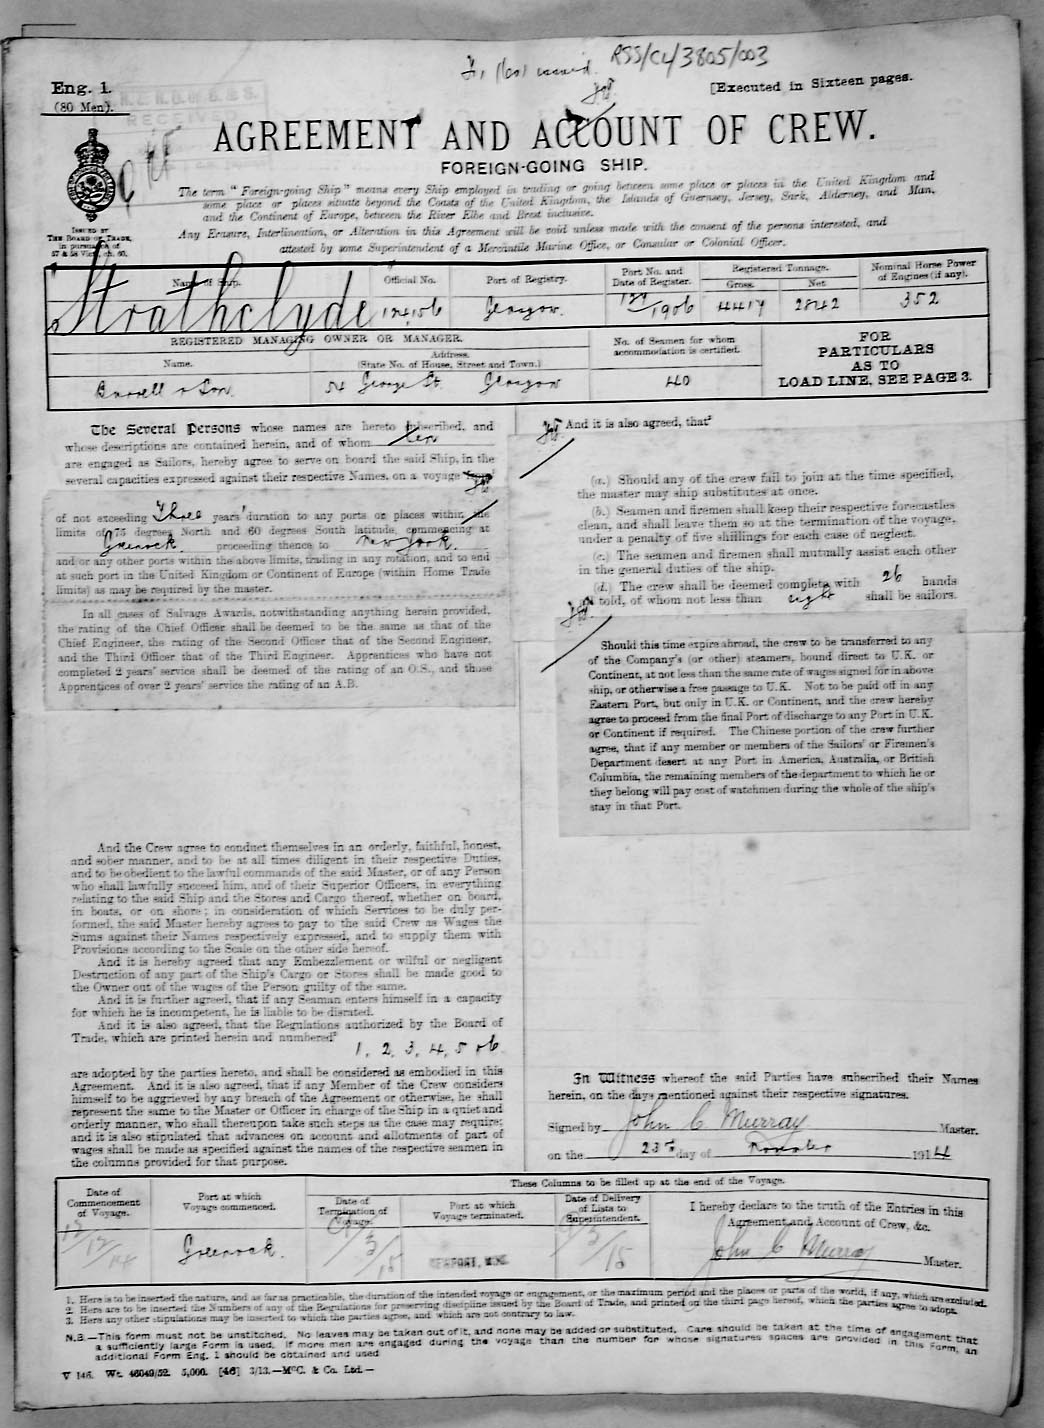 RSS/CL/3805/003
Eng. 1.
(80 Men).
[Executed in Sixteen pages.
RECEIVED
AGREEMENT AND ACCOUNT OF CREW.
FOREIGN-GOING SHIP.
ISSUED BY
THE BOARD OF TRADE,
in pursuance of
57 & 58 Vict., ch. 60.
The term "Foreign-going Ship" means every Ship employed in trading or going between some place or places in the United Kingdom and
some place or places situate beyond the Coasts of the United Kingdom, the Islands of Guernsey, Jersey, Sark, Alderney, and Man,
and the Continent of Europe, between the River Elbe and Brest inclusive.
Any Erasure, Interlineation, or Alteration in this Agreement will be void unless made with the consent of the persons interested, and
attested by some Superintendent of a Mercantile Marine Office, or Consular or Colonial Officer.
Name of Ship. Official No. Port of Registry. Port No. and Date of Register. Registered Tonnage. Gross. Net. Nominal Horse Power of Engines (if any).
Strathclyde 124156 Glasgow. 1906 4419 2842 352
REGISTERED MANAGING OWNER OR MANAGER.
Name. Address. (State No. of House, Street and Town.)
No. of Seamen for whom accommodation is certified.
FOR
PARTICULARS
AS TO
LOAD LINE, SEE PAGE 3.
Burrell & Son. 54 George St. Glasgow 40
The Several Persons whose names are hereto subscribed, and
whose descriptions are contained herein, and of whom ten
are engaged as Sailors, hereby agree to serve on board the said Ship, in the
several capacities expressed against their respective Names, on a voyage
of not exceeding Three years' duration to any ports or places within the
limits of 75 degrees North and 60 degrees South latitude, commencing at
Greenock proceeding thence to New York.
and/or any other ports within the above limits, trading in any rotation, and to end
at such port in the United Kingdom or Continent of Europe (within Home Trade
limits) as may be required by the master.
In all cases of Salvage Awards, notwithstanding anything herein provided,
the rating of the Chief Officer shall be deemed to be the same as that of the
Chief Engineer, the rating of the Second Officer that of the Second Engineer,
and the Third Officer that of the Third Engineer. Apprentices who have not
completed 2 years' service shall be deemed of the rating of an O.S., and those
Apprentices of over 2 years' service the rating of an A.B.
And the Crew agree to conduct themselves in an orderly, faithful, honest,
and sober manner, and to be at all times diligent in their respective Duties,
and to be obedient to the lawful commands of the said Master, or of any Person
who shall lawfully succeed him, and of their Superior Officers, in everything
relating to the said Ship and the Stores and Cargo thereof, whether on board,
in boats, or on shore; in consideration of which Services to be duly per-
formed, the said Master hereby agrees to pay to the said Crew as Wages the
Sums against their Names respectively expressed, and to supply them with
Provisions according to the Scale on the other side hereof.
And it is hereby agreed that any Embezzlement or wilful or negligent
Destruction of any part of the Ship's Cargo or Stores shall be made good to
the Owner out of the wages of the Person guilty of the same.
And it is further agreed, that if any Seaman enters himself in a capacity
for which he is incompetent, he is liable to be disrated.
And it is also agreed, that the Regulations authorized by the Board of
Trade, which are printed herein and numbered²
1, 2, 3, 4, 5 & 6.
are adopted by the parties hereto, and shall be considered as embodied in this
Agreement. And it is also agreed, that if any Member of the Crew considers
himself to be aggrieved by any breach of the Agreement or otherwise, he shall
represent the same to the Master or Officer in charge of the Ship in a quiet and
orderly manner, who shall thereupon take such steps as the case may require;
and it is also stipulated that advances on account and allotments of part of
wages shall be made as specified against the names of the respective seamen in
the columns provided for that purpose.
And it is also agreed, that³
(a.) Should any of the crew fail to join at the time specified,
the master may ship substitutes at once.
(b.) Seamen and firemen shall keep their respective forecastles
clean, and shall leave them so at the termination of the voyage,
under a penalty of five shillings for each case of neglect.
(c.) The seamen and firemen shall mutually assist each other
in the general duties of the ship.
(d.) The crew shall be deemed complete with 26 hands
all told, of whom not less than eight shall be sailors.
Should this time expire abroad, the crew to be transferred to any
of the Company's (or other) steamers, bound direct to U.K. or
Continent, at not less than the same rate of wages signed for in above
ship, or otherwise a free passage to U.K. Not to be paid off in any
Eastern Port, but only in U.K. or Continent, and the crew hereby
agree to proceed from the final Port of discharge to any Port in U.K.
or Continent if required. The Chinese portion of the crew further
agree, that if any member or members of the Sailors' or Firemen's
Department desert at any Port in America, Australia, or British
Columbia, the remaining members of the department to which he or
they belong will pay cost of watchmen during the whole of the ship's
stay in that Port.
In Witness whereof the said Parties have subscribed their Names
herein, on the days mentioned against their respective signatures.
Signed by John C Murray Master.
on the 23rd day of November 1914
These Columns to be filled up at the end of the Voyage.
Date of Commencement of Voyage. Port at which Voyage commenced. Date of Termination of Voyage. Port at which Voyage terminated. Date of Delivery of Lists to Superintendent.
I hereby declare to the truth of the Entries in this
Agreement and Account of Crew, &c.
12/12/14 Greenock. 9/3/15 NEWPORT, MON. 9/3/15 John C Murray Master.
1. Here is to be inserted the nature, and as far as practicable, the duration of the intended voyage or engagement, or the maximum period and the places or parts of the world, if any, which are excluded.
2. Here are to be inserted the Numbers of any of the Regulations for preserving discipline issued by the Board of Trade, and printed on the third page hereof, which the parties agree to adopt.
3. Here any other stipulations may be inserted to which the parties agree, and which are not contrary to law.
N.B.—This form must not be unstitched. No leaves may be taken out of it, and none may be added or substituted. Care should be taken at the time of engagement that
a sufficiently large Form is used. If more men are engaged during the voyage than the number for whose signatures spaces are provided in this Form, an
additional Form Eng. 1 should be obtained and used
V 146. Wt. 46049/52. 5,000. [46] 3/13.—McC. & Co. Ltd.—